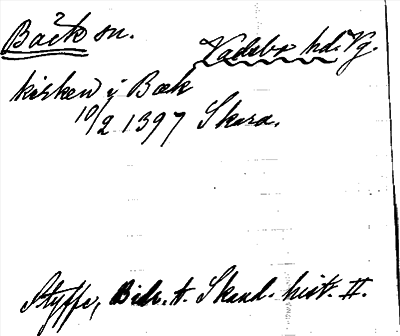 Bäck sn. Vadsbo hd. Vg.
kirken j Bæk
10/2 1397 Skara.
Styffe, Bidr. t. Skand. hist. II.